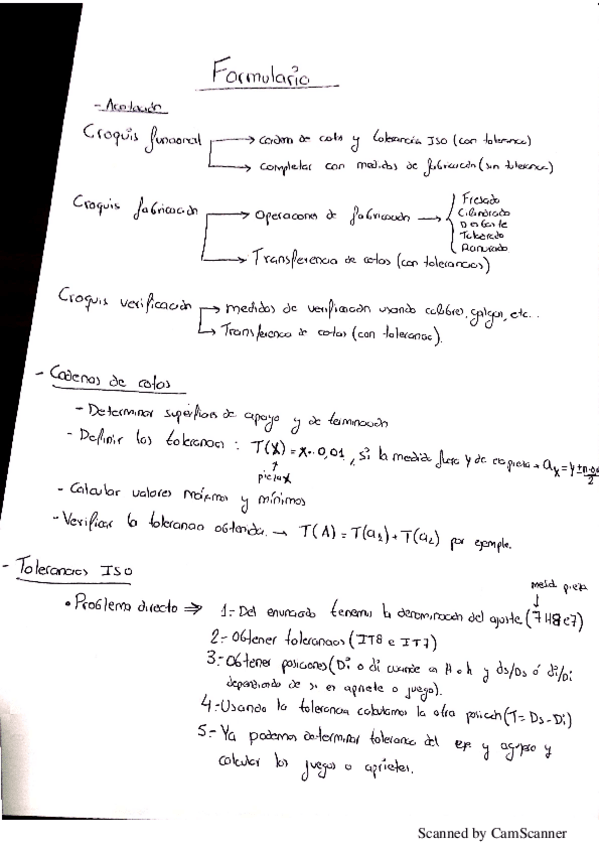 Formulario
- Acotación
Croquis funcional → cadena de cotas y tolerancia ISO (con tolerancia)
→ completar con medidas de fabricación (sin tolerancia)
Croquis fabricación → Operaciones de fabricación → Fresado
Cilindrado
Desbaste
Taladrado
Ranurado
→ Transferencia de cotas (con tolerancias)
Croquis verificación → medidas de verificación usando calibres, galgas, etc..
→ Transferencia de cotas (con tolerancia).
- Cadenas de cotas
- Determinar superficies de apoyo y de terminación
- Definir las tolerancias : T(X) = x · 0,01 , si la medida fuera y de
↑
pieza X
- Calcular valores máximos y mínimos
- Verificar la tolerancia obtenida. → T(A) = T(a1) + T(a2) por ejemplo.
- Tolerancias ISO
medida pieza
↓
• Problema directo ⇒ 1.- Del enunciado tenemos la denominación del ajuste (7H8e7)
2.- Obtener tolerancias (IT8 e IT7)
3.- Obtener posiciones (Di o di cuando es H o h y ds/Ds ó di/Di
dependiendo de si es apriete o juego).
4.- Usando la tolerancia calculamos la otra posición (T = Ds - Di)
5.- Ya podemos determinar tolerancia del eje y agujero y
calcular los juegos o aprietes.
Scanned by CamScanner